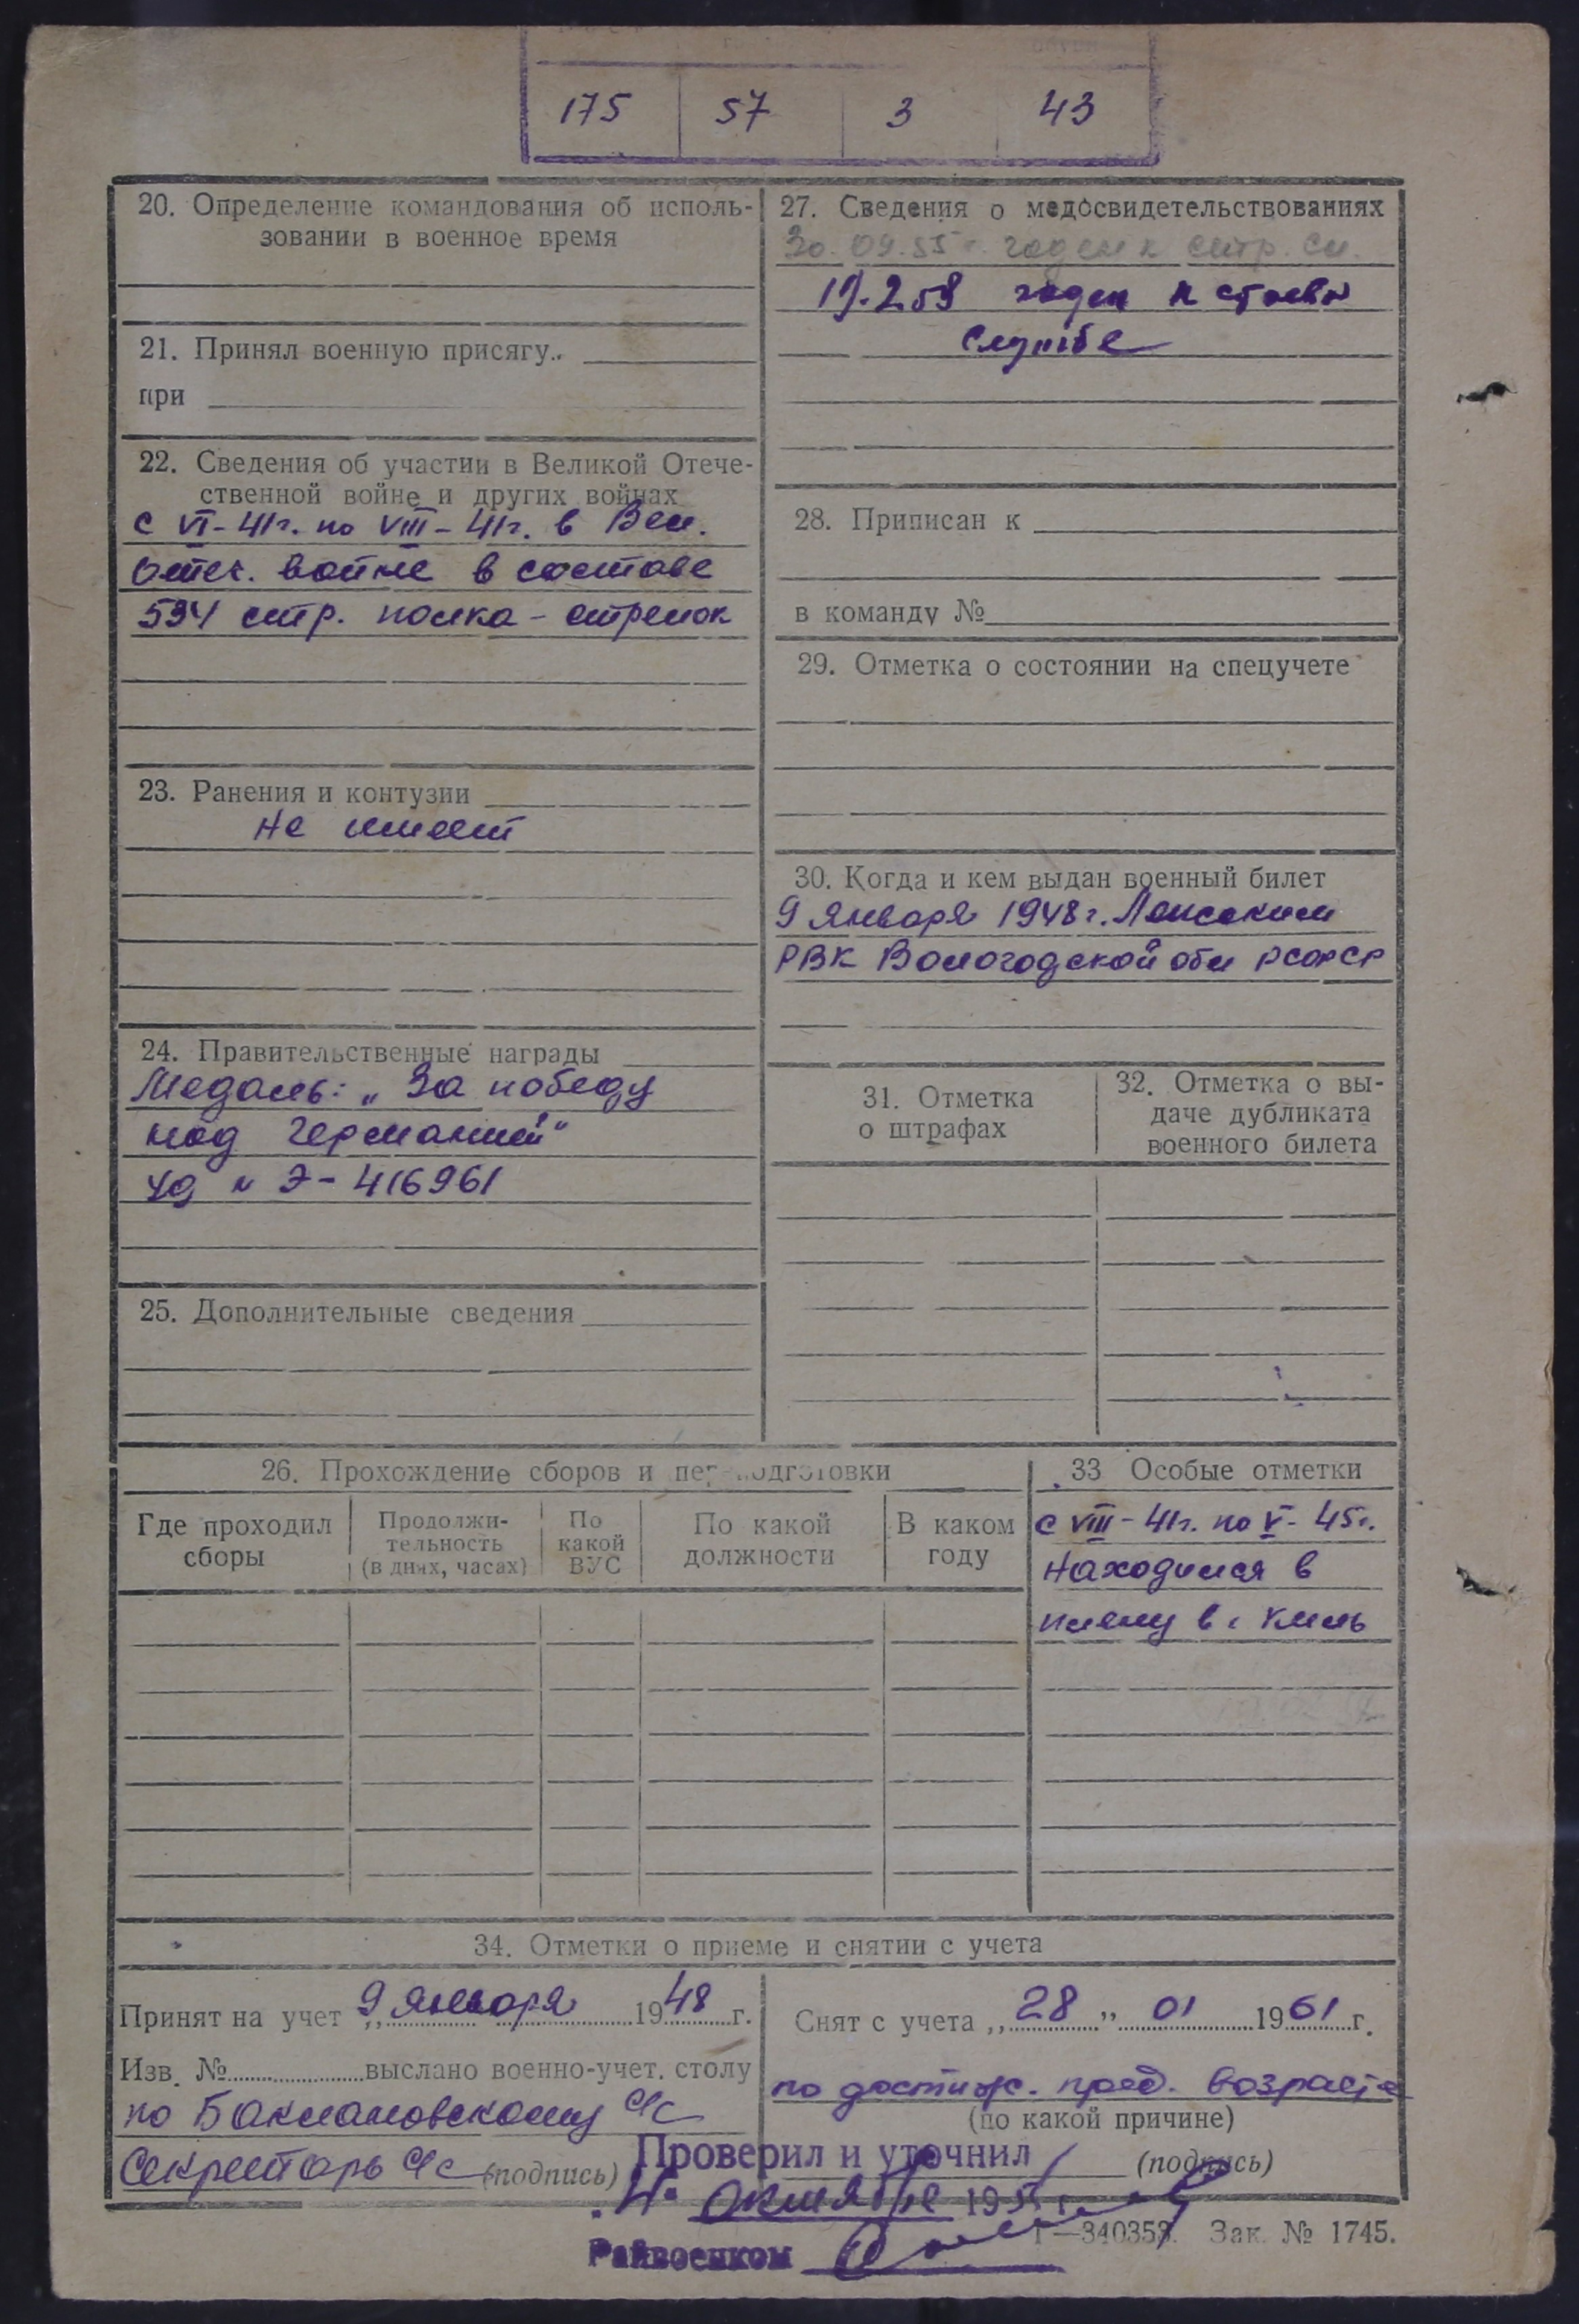 175 57 3 43
20. Определение командования об исполь-
зовании в военное время
21. Принял военную присягу
при
22. Сведения об участии в Великой Отече-
ственной войне и других войнах
с VI-41г. по VIII-41г. в Вел.
Отеч. войне в составе
594 стр. полка - стрелок
23. Ранения и контузии
не имеет
24. Правительственные награды
Медаль: „За победу
над Германией"
уд № Э-416961
25. Дополнительные сведения
27. Сведения о медосвидетельствованиях
30.09.55 г. годен к стр. сл.
19.2.59 годен к строевой
службе
28. Приписан к
в команду №
29. Отметка о состоянии на спецучете
30. Когда и кем выдан военный билет
9 января 1948 г.
РВК Вологодской обл РСФСР
31. Отметка
о штрафах
32. Отметка о вы-
даче дубликата
военного билета
26. Прохождение сборов и переподготовки
Где проходил
сборы
Продолжи-
тельность
(в днях, часах)
По
какой
ВУС
По какой
должности
В каком
году
33 Особые отметки
с VIII-41г. по V-45г.
находился в
плену в г Киль
34. Отметки о приеме и снятии с учета
Принят на учет „9 января 1948 г.
Изв. № выслано военно-учет. столу
по Баклановскому с/с
Секретарь с/с (подпись)
Снят с учета „28" 01 1961 г.
по достиж. пред. возраста
(по какой причине)
(подпись)
Проверил и уточнил
октября 195 г.
Райвоенком
Г—340353. Зак. № 1745.